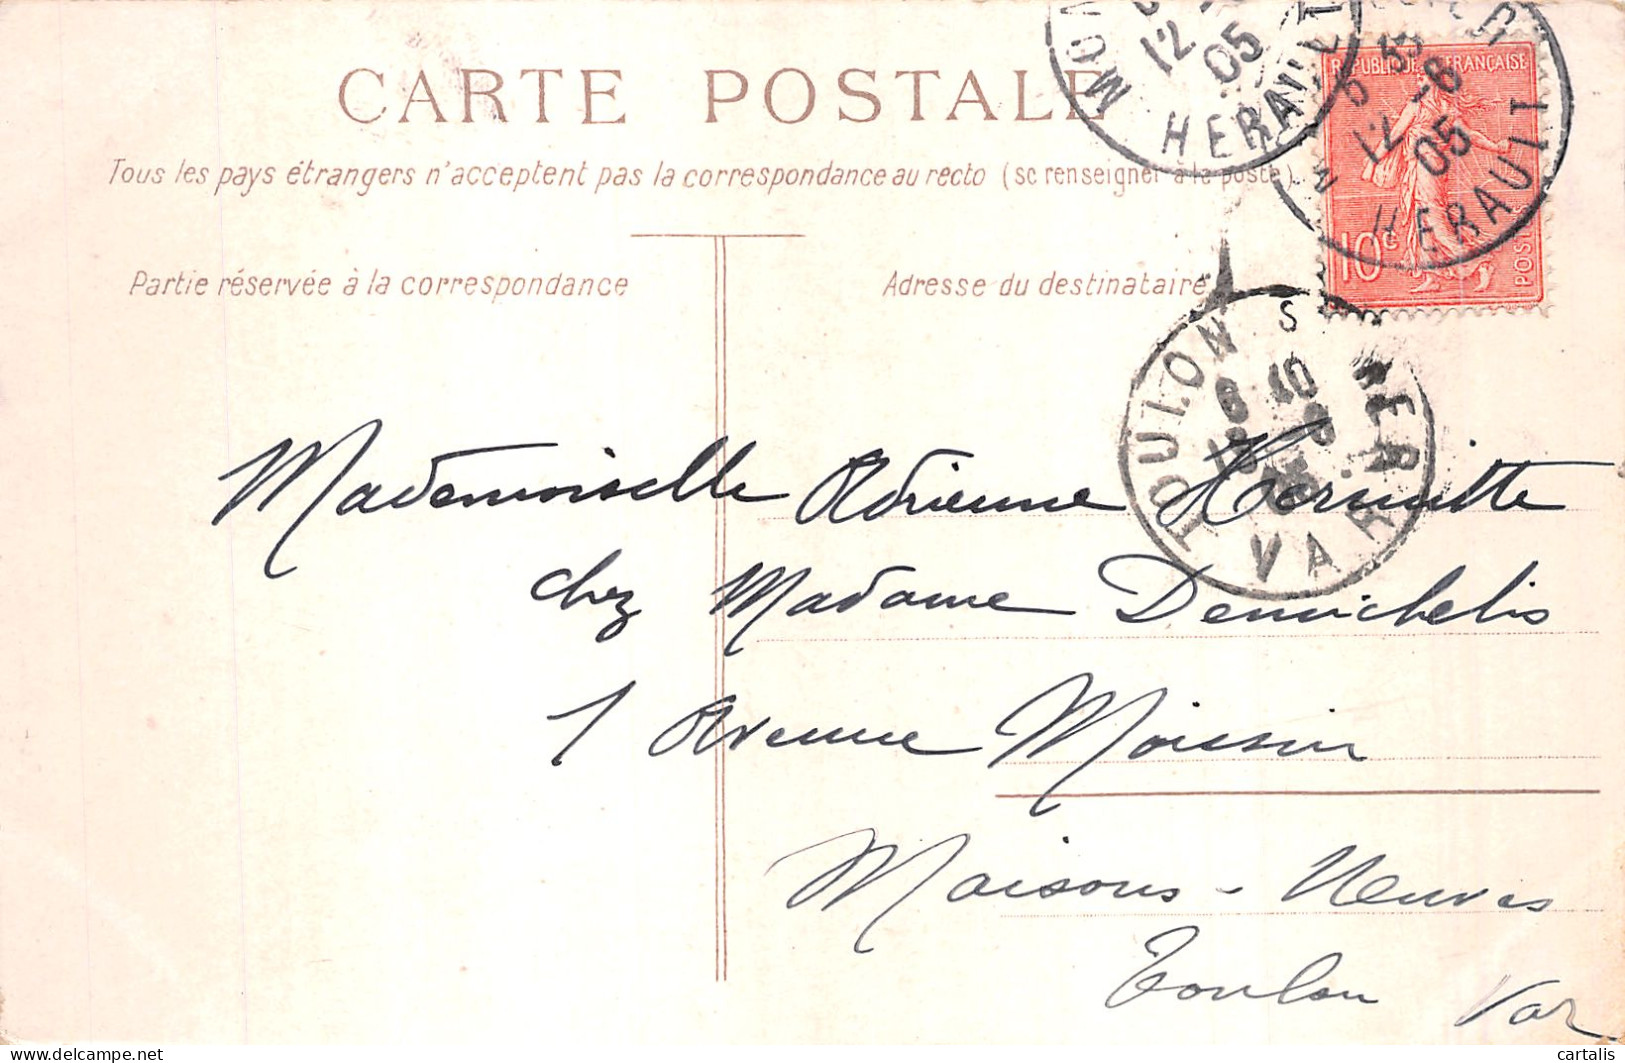 CARTE POSTALE
Tous les pays étrangers n'acceptent pas la correspondance au recto (se renseigner à la poste)
Partie réservée à la correspondance
Adresse du destinataire
12
05
HERAULT
REPUBLIQUE FRANÇAISE
10c
POSTES
12 -6
05
HERAULT
TOULON S MER
VAR
Mademoiselle Adrienne Hermitte
chez Madame Demichelis
1 Avenue
Maisons-Neuves
Toulon Var
delcampe.net
cartalis